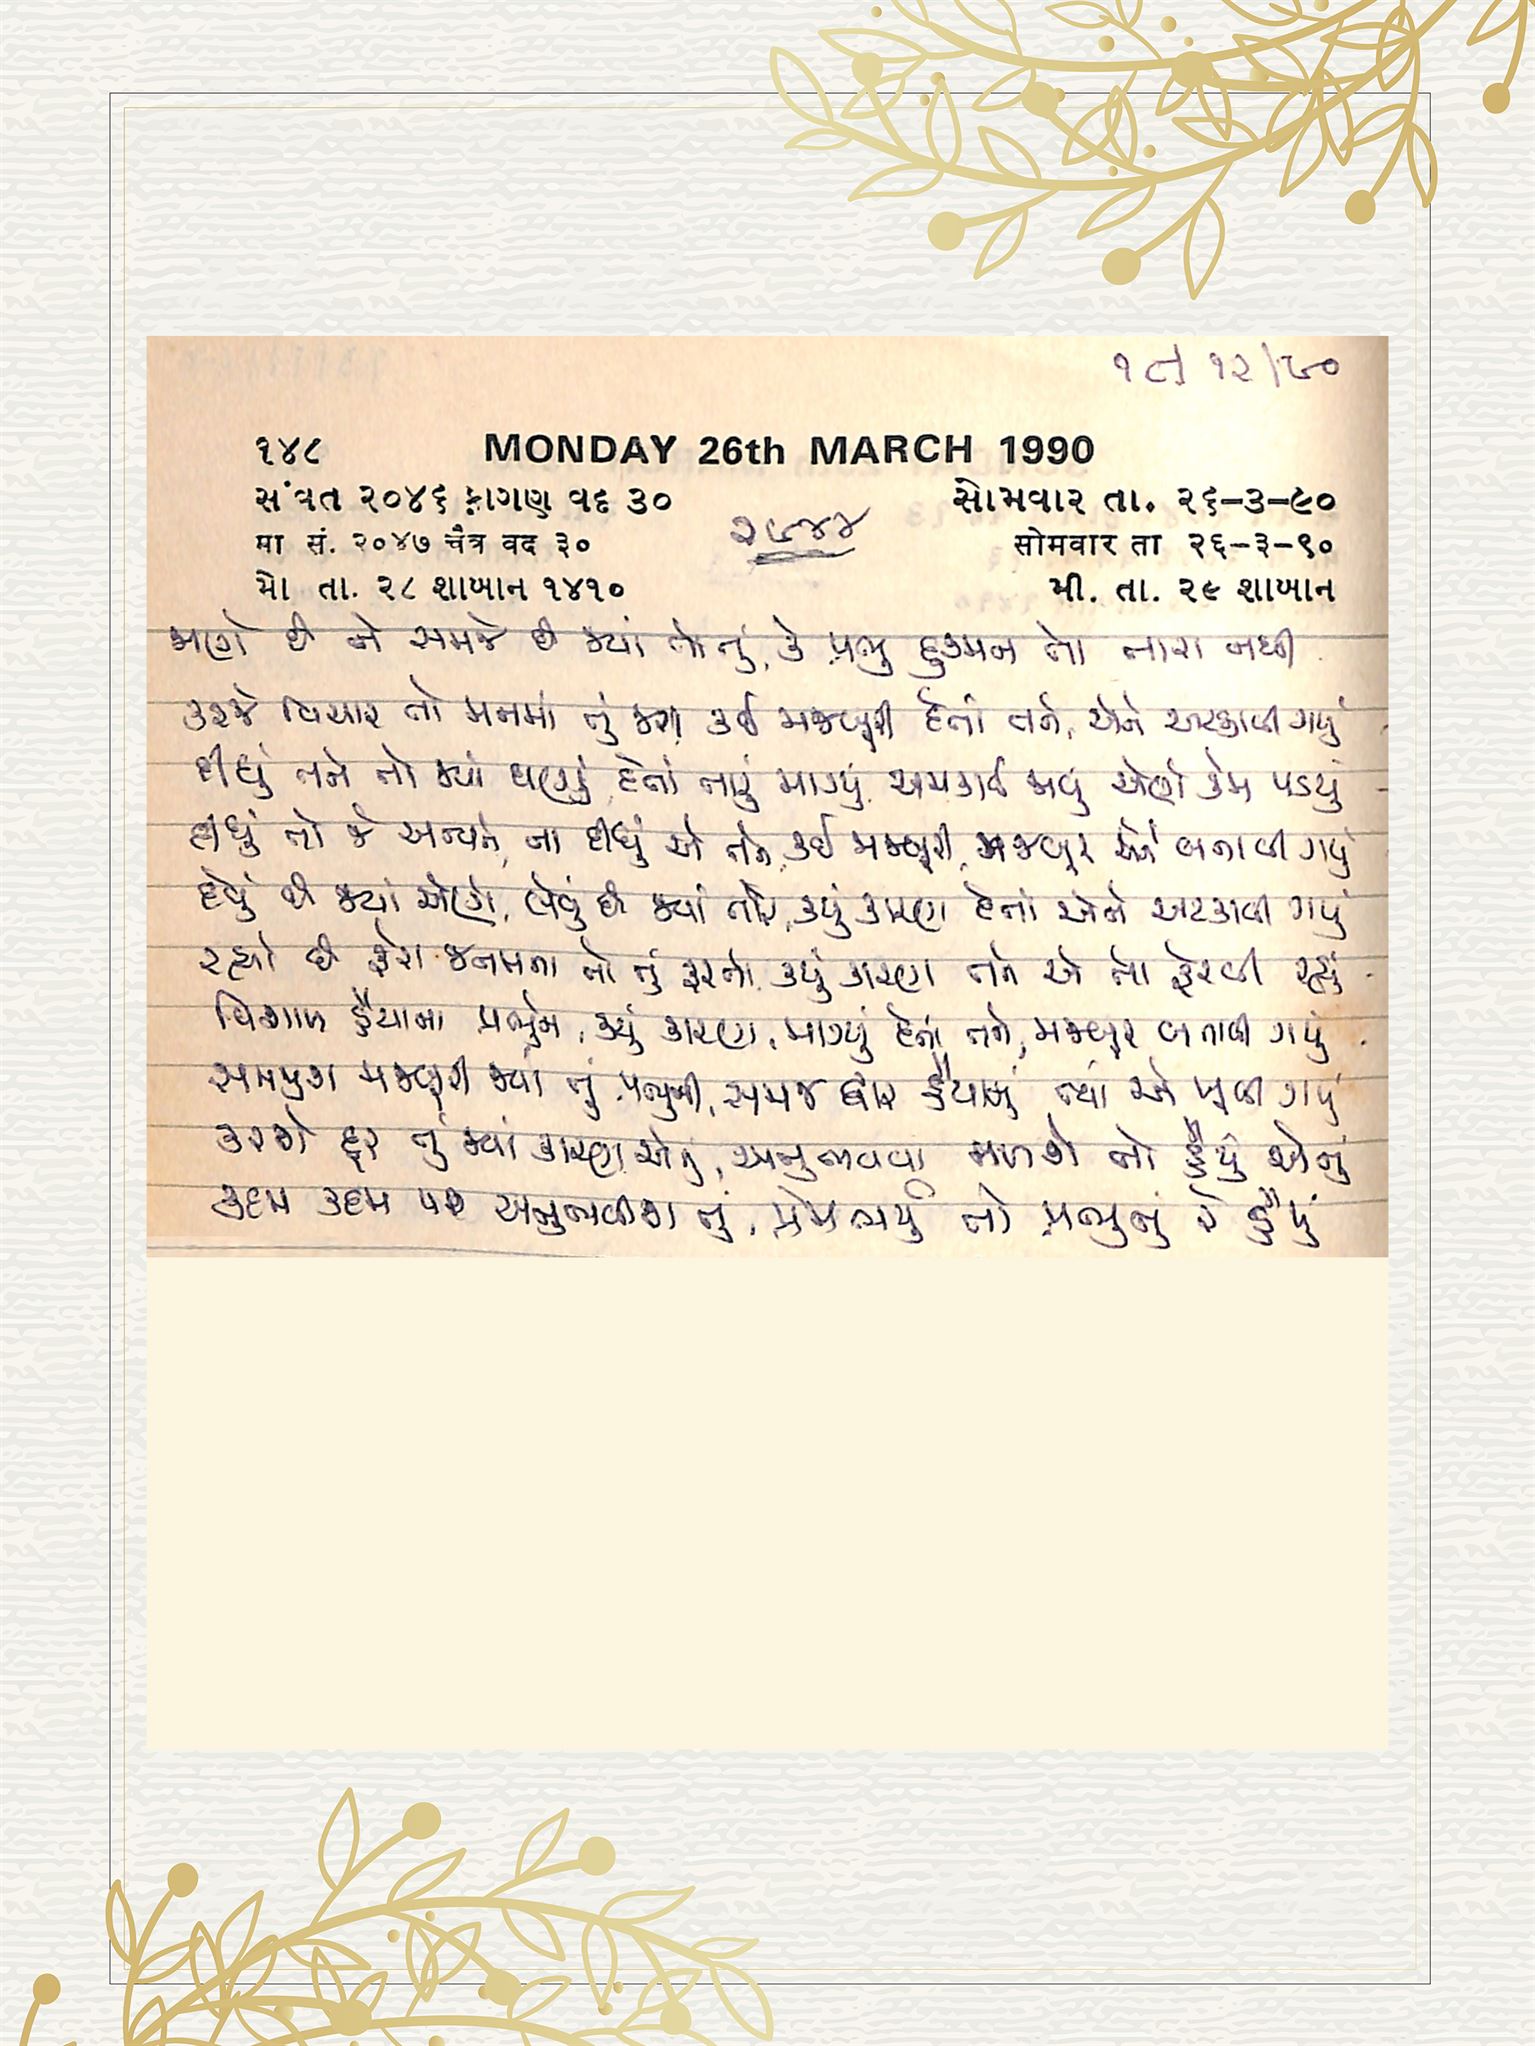 ૧૯ ૧૨/૯૦
૧૪૮ MONDAY 26th MARCH 1990
સંવત ૨૦૪૬ ફાગણ વદ ૩૦ સોમવાર તા. ૨૬-૩-૯૦
मा सं. २०४७ चैत्र वद ३० सोमवार ता २६-३-९०
મો તા. ૨૮ શાબાન ૧૪૧૦ મી. તા. ૨૯ શાબાન
૨૯૪૪
જાણે છે ને સમજે છે ક્યાં તો તું, કે પ્રભુ દુશ્મન તો તારા નથી
કરજે વિચાર તો મનમાં તું જરા, કઈ મજબૂરી દેતાં તને, એને અટકાવી ગયું
દીધું તને તો જ્યાં ઘણું, દેતાં તારું માગ્યું, અચકાઈ જવું એણે કેમ પડયું
દીધું તો જે અન્યને, ના દીધું એ તને, કઈ મજબૂરી, મજબૂર એને બનાવી ગયું
દેવું છે જ્યાં એણે, લેવું છે જ્યાં તારે, કયું કારણ દેતાં એને અટકાવી ગયું
રહ્યો છે ફેરા જનમના તો તું ફરતો, કયું કારણ તને એ તો ફેરવી રહ્યું
વિશાળ હૈયાના પ્રભુને, કયું કારણ, માગ્યું દેતાં તને, મજબૂર બનાવી ગયું
સમજીશ મજબૂરી જ્યાં તું પ્રભુની, સમજ દ્વાર હૈયાનું ત્યાં એ ખૂલી ગયું
કરશે દૂર તું જ્યાં કારણ એનું, અનુભવવા મળશે તો હૈયું એનું
કદમ કદમ પર અનુભવીશ તું, પ્રેમભર્યું તો પ્રભુનું રે હૈયું